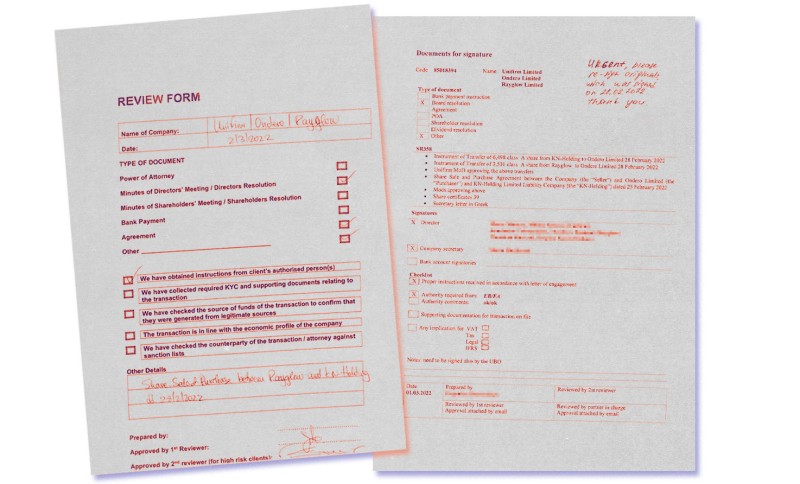 REVIEW FORM
Name of Company: Unifirm / Ondero / Rayglow
Date: 2/3/2022
TYPE OF DOCUMENT
Power of Attorney
Minutes of Directors' Meeting / Directors Resolution
Minutes of Shareholders' Meeting / Shareholders Resolution
Bank Payment
Agreement
Other
We have obtained instructions from client's authorised person(s)
We have collected required KYC and supporting documents relating to
the transaction
We have checked the source of funds of the transaction to confirm that
they were generated from legitimate sources
The transaction is in line with the economic profile of the company
We have checked the counterparty of the transaction / attorney against
sanction lists
Other Details
Share Sale & Purchase between Rayglow and KN-Holding
Prepared by:
Approved by 1st Reviewer:
Approved by 2nd reviewer (for high risk clients):
Documents for signature
Code 85018394 Name Unifirm Limited
Ondero Limited
Rayglow Limited
URGENT, please
re-sign originals
which was signed
on 28.02.2022
Thank you.
Type of document
Bank payment instruction
X Board resolution
Agreement
POA
Shareholder resolution
Dividend resolution
X Other
Instrument of Transfer of class A share from KN-Holding to Ondero Limited 28 February 2022
Instrument of Transfer of class A share from Rayglow to Ondero Limited 28 February 2022
Unifirm MoD approving the above transfers
Share Sale and Purchase Agreement between the Company (the "Seller") and Ondero Limited (the
"Purchaser") and KN-Holding Limited Liability Company (the "KN-Holding") dated 25 February 2022
Mods approving above
Share certificates 39
Summary letter in Greek
Signatures
X Director
X Company secretary
Bank account signatories
Checklist
X Proper instruction received in accordance with letter of engagement
X Authority required from: EB/FA
Authority comments: ok/ok
Supporting documentation for transaction on file
Any implication for VAT
Tax
Legal
HRS
Notes: need to be signed also by the UBO
Date
01.03.2022
Prepared by
Reviewed by 2nd reviewer
Reviewed by 1st reviewer
Approval attached by email
Reviewed by partner in charge
Approval attached by email